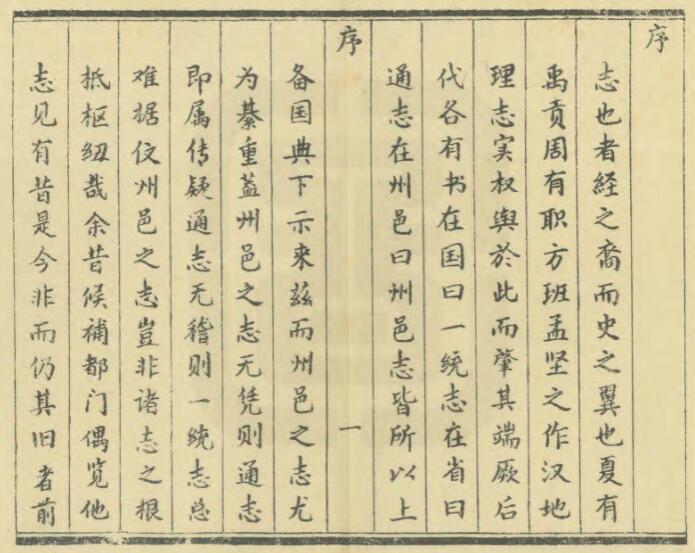 序
志也者経之裔而史之翼也夏有
禹贡周有职方班孟坚之作汉地
理志实权舆於此而肇其端厥后
代各有书在国曰一统志在省曰
通志在州邑曰州邑志皆所以上
序
一
备国典下示来兹而州邑之志尤
为綦重盖州邑之志无凭则通志
即属传疑通志无稽则一统志总
难据伩州邑之志岂非诸志之根
柢枢纽哉余昔候补都门偶览他
志见有昔是今非而仍其旧者前